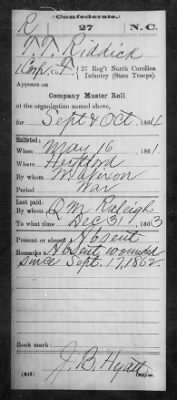 Confederate.
R 27 N.C.
T. T. Riddick
Corp., Co. F, 27 Reg't North Carolina
Infantry (State Troops)
Appears on
Company Muster Roll
of the organization named above,
for Sept & Oct, 1864
Enlisted:
When May 16, 1861.
Where Hertford
By whom
Period War
Last paid:
By whom Q.M. Raleigh
To what time Dec 31, 1863
Present or absent Absent
Remarks: Absent wounded
since Sept. 17, 1862.
Book mark:
J. B. Hyatt
(642) Copyist.